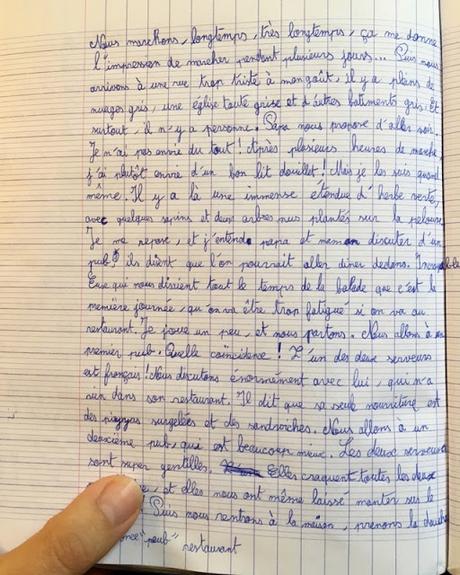 Nous marchons, longtemps, très longtemps, ça me donne
l'impression de marcher pendant plusieurs jours... Puis nous
arrivons à une rue trop triste à mon goût, il y a pleins de
nuages gris, une église toute grise et d'autres batiments gris. Et
surtout, il n'y a personne. Papa nous propose d'aller voir.
Je n'ai pas envie du tout! Après plusieurs heures de marche,
j'ai plutôt envie d'un bon lit douillet! Mais je les suis quand
même. Il y a là une immense étendue d'herbe verte,
avec quelques sapins et deux arbres nus plantés sur la pelouse.
Je me repose, et j'entends papa et maman discuter d'un
pub, ils disent que l'on pourrait aller diner dedans.
Eux que nous disaient tout le temps de la balade que c'est la
première journée, qu'on va être trop fatigué si on va au
restaurant. Je joue un peu, et nous partons. Nous allons à un
premier pub. Quelle coïncidence! L'un des deux serveurs
est français! Nous discutons énormément avec lui, qui n'a
dans son restaurant. Il dit que sa seule nourriture est
des pizzas surgelées et des sandwiches. Nous allons a un
deuxième pub, qui est beaucoup mieux. Les deux serveuses
sont super gentilles. Elles craquent toutes les deux
, et elles nous ont même laissé monter sur le
Puis nous rentrons à la maison, prenons la douche
"pub" restaurant